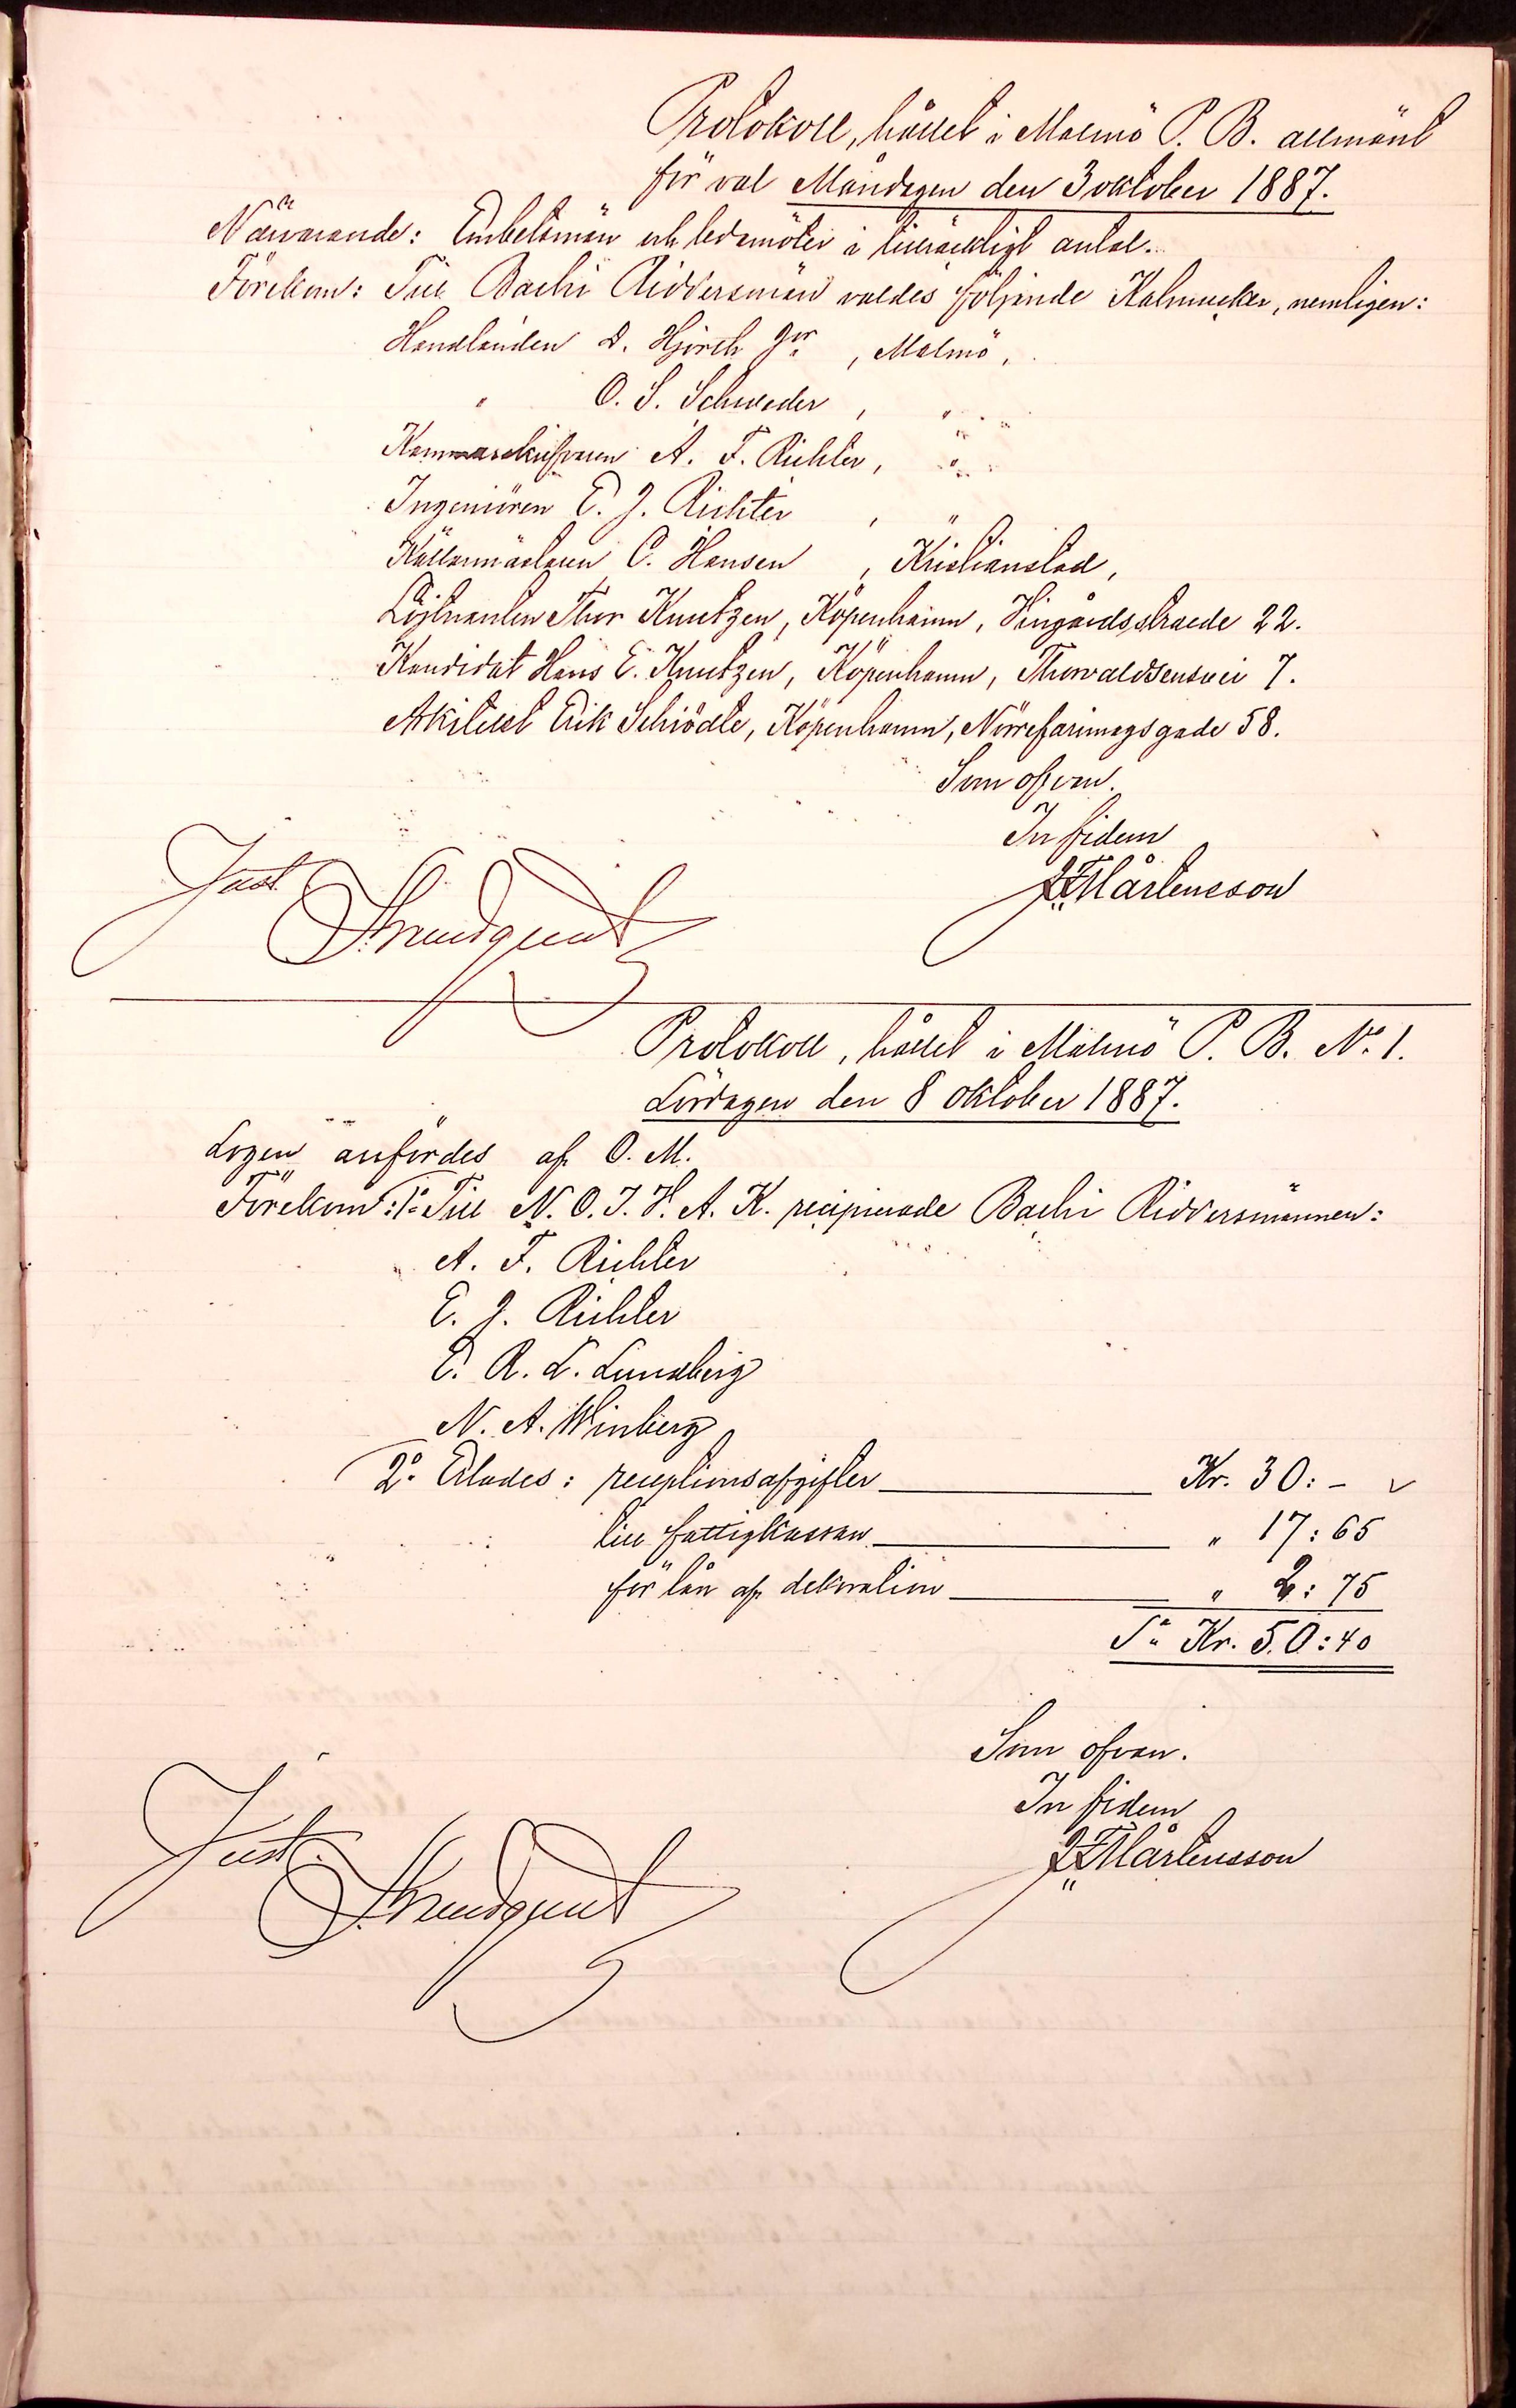 Protokoll, hållet i Malmö P. B. allmänt
för val Måndagen den 3 oktober 1887.
Närvarande: Embetsmän och ledamöter i tillräckligt antal.
Förekom: Till Bachi Riddersmän valdes följande Kalmucker, nemligen:
Handlanden D. Hjorth Jor, Malmö,
" O. S. Schweder, "
Kammarskrifvaren A. F. Richter, "
Ingeniören E. J. Richter, "
Källarmästaren C. Hansen, Kristianstad,
Löjtnanten Thor Knutzen, Köpenhamn, Vingårdsstraede 22.
Kandidat Hans E. Knutzen, Köpenhamn, Thorvaldsensvei 7.
Arkitekt Erik Schiödte, Köpenhamn, Nörrefarimagsgade 58.
Som ofvan.
In fidem
J F Mårtensson
Just.
Protokoll, hållet i Malmö P. B. No 1.
Lördagen den 8 oktober 1887.
Logen anfördes af O. M.
Förekom: 1o Till N. O. I. V. A. K. recipierade Bachi Riddersmännen:
A. F. Richter
E. J. Richter
E. R. L. Lundberg
N. A. Winberg
2o Erlades: receptionsafgifter Kr. 30: -
till fattigkassan " 17: 65
för lån af dekoration " 2: 75
Sa Kr. 50: 40
Som ofvan.
In fidem
J F Mårtensson
Just.